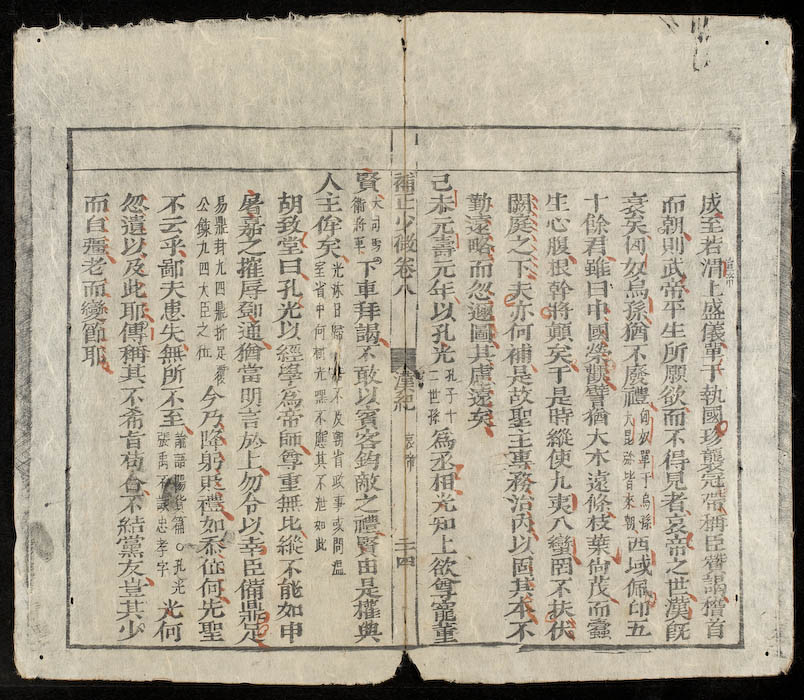 成至若渭上盛儀單于執國珍襲冠帶稱臣䞇謁稽首
宣帝
而朝則武帝平生所願欲而不得見者哀帝之世漢旣
衰矣匈奴烏孫猶不廢禮匈奴單于烏孫大昆弥皆來朝西域佩印五
十餘君雖曰中國榮觀嘗猶大木遠條枝葉尙茂而蠹
生心腹根幹將顚矣于是時縱使九夷八蠻罔不扶伏
闕庭之下夫亦何補是故聖主專務治內以固其本不
勤遠略而忽邇圖其慮遠矣
己未元壽元年以孔光孔子十二世孫爲丞相光知上欲尊寵董
補正少微卷八 漢紀 哀帝 三十四
賢大司馬衛將軍下車拜謁不敢以賓客鈞敵之禮賢由是權與
人主侔矣光沐日歸不及朝省政事或問溫室省中何樹光嘿不應其不泄如此
胡致堂曰孔光以經學爲帝師尊重無比縱不能如申
屠嘉之摧辱鄧通猶當明言於上勿令以幸臣備鼎足
易鼎卦九四鼎折足覆公餗九四大臣之位今乃降躬卑禮如忝位何先聖
不云乎鄙夫患失無所不至論語陽貨篇○孔光張禹不識忠孝字光何
忽遺以及此耶傳稱其不希旨苟合不結黨友豈其少
而自彊老而變節耶